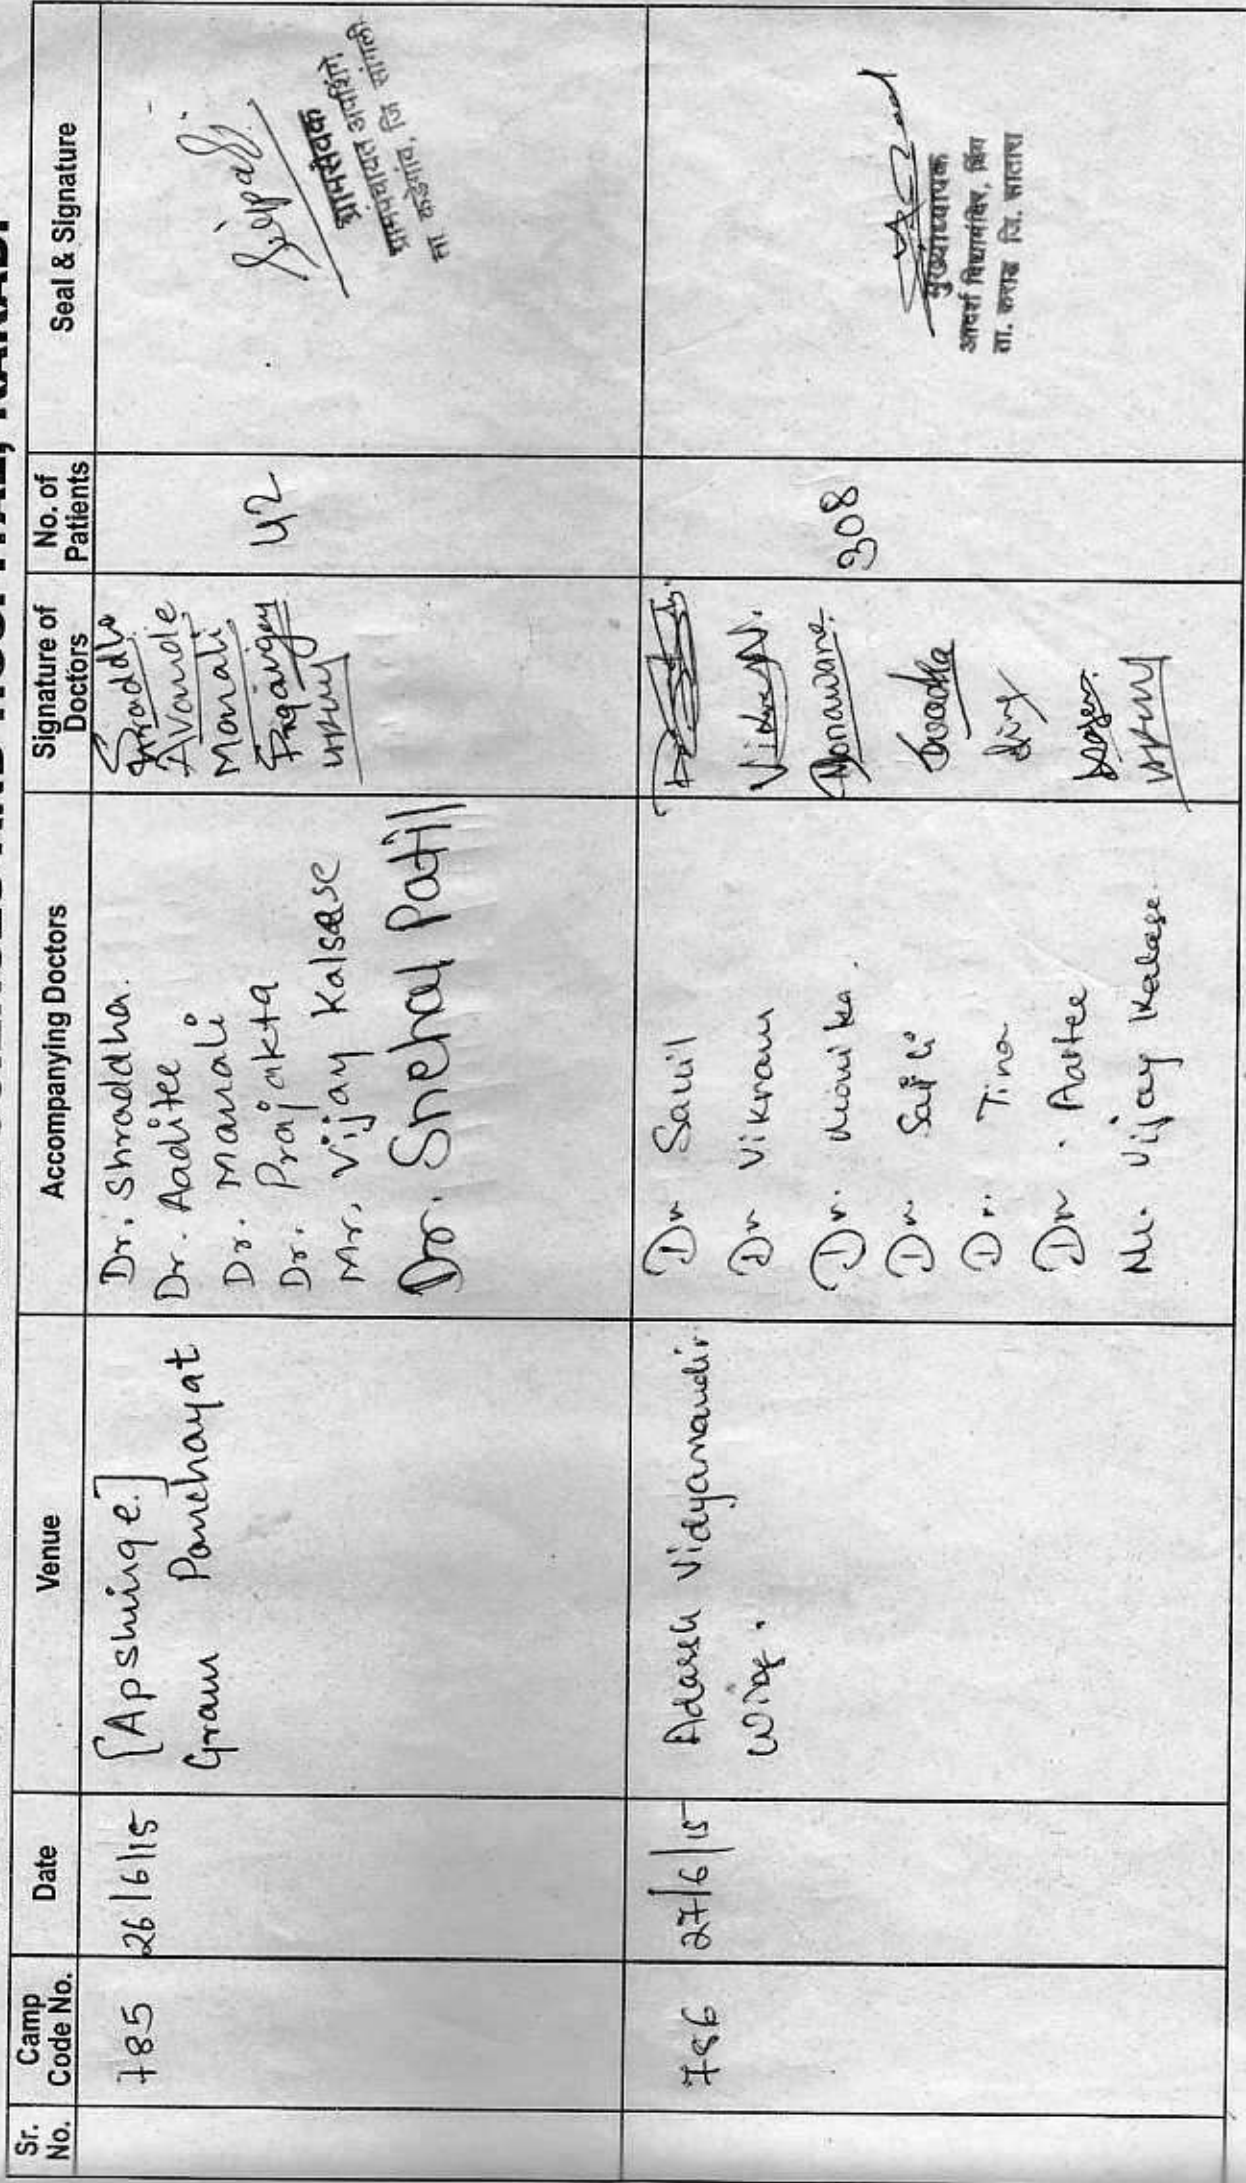 Sr. No.
Camp Code No.
Date
Venue
Accompanying Doctors
Signature of Doctors
No. of Patients
Seal & Signature
785
26/6/15
[Apshinge]
Gram Panchayat
Dr. Shraddha.
Dr. Aaditee
Dr. Manali
Dr. Prajakta
Mr. Vijay Kalsase
Dr. Snehal Patil
Shraddha
Avande
Manali
42
ग्रामसेवक
ग्रामपंचायत अपशिंगे,
ता. कडेगांव, जि. सांगली.
786
27/6/15
Adarsh Vidyamandir
Wing.
Dr Saunil
Dr Vikram
Dr. Monika.
Dr. Saili
Dr. Tina
Dr. Aartee
Mr. Vijay Kalase.
Vikram
Monawane.
308
मुख्याध्यापक
आदर्श विद्यामंदिर, विंग
ता. कराड जि. सातारा